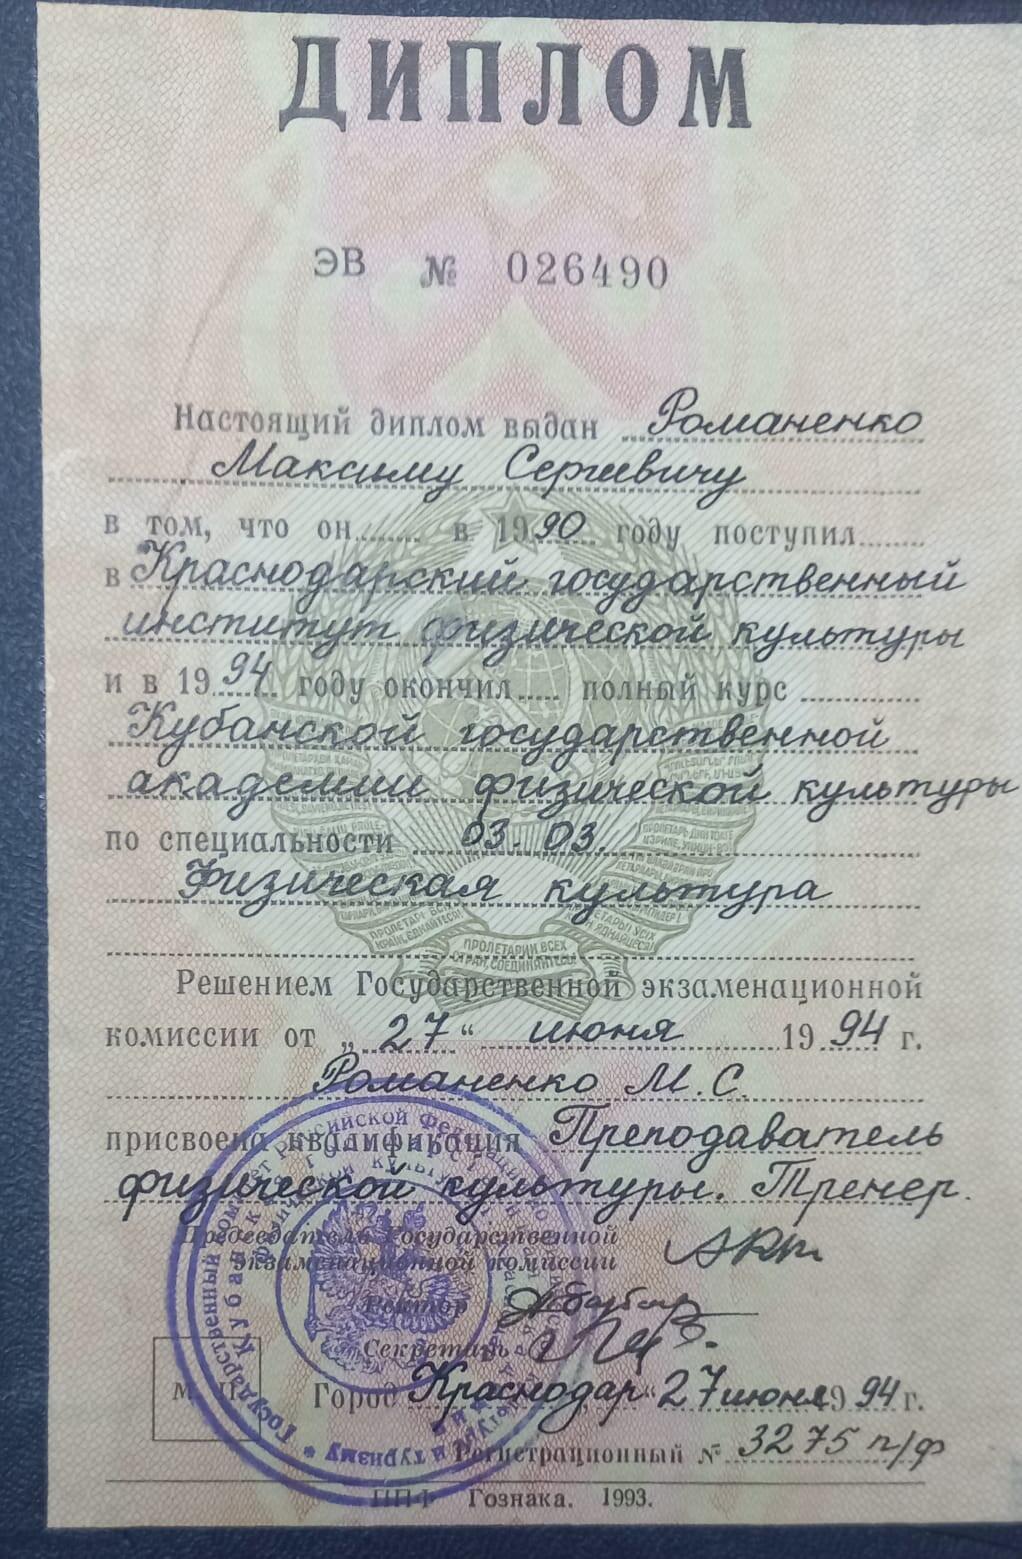 ДИПЛОМ
ЭВ № 026490
Настоящий диплом выдан Романенко
Максиму Сергеевичу
в том, что он в 1990 году поступил
в Краснодарский государственный
институт физической культуры
и в 1994 году окончил полный курс
Кубанской государственной
академии физической культуры
по специальности 03.03.
Физическая культура
ПРОЛЕТАРИИ ВСЕХ
СТРАН, СОЕДИНЯЙТЕСЬ!
Решением Государственной экзаменационной
комиссии от „27“ июня 1994 г.
Романенко М.С.
присвоена квалификация Преподаватель
физической культуры. Тренер.
Председатель Государственной
экзаменационной комиссии
Ректор
Секретарь
М. П.
Город Краснодар „27 июня 1994 г.
Регистрационный № 3275 п/ф
Государственный комитет Российской Федерации по физической культуре и туризму *
Кубанская государственная академия физической культуры
Гознака. 1993.